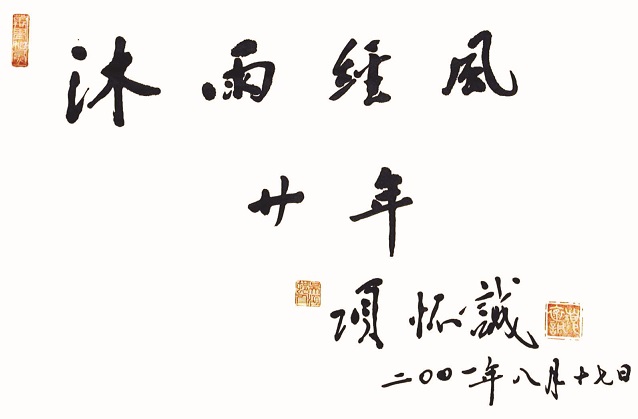 沐雨經風
廿年
項怀誠
二〇〇一年八月十七日